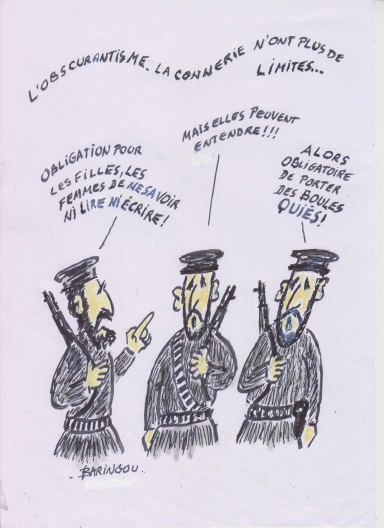 L'OBSCURANTISME. LA CONNERIE N'ONT PLUS DE
LIMITES...
OBLIGATION POUR
LES FILLES, LES
FEMMES DE NE SAVOIR
NI LIRE NI ÉCRIRE!
MAIS ELLES PEUVENT
ENTENDRE!!!
ALORS
OBLIGATOIRE
DE PORTER
DES BOULES
QUIÈS!
BARINGOU.